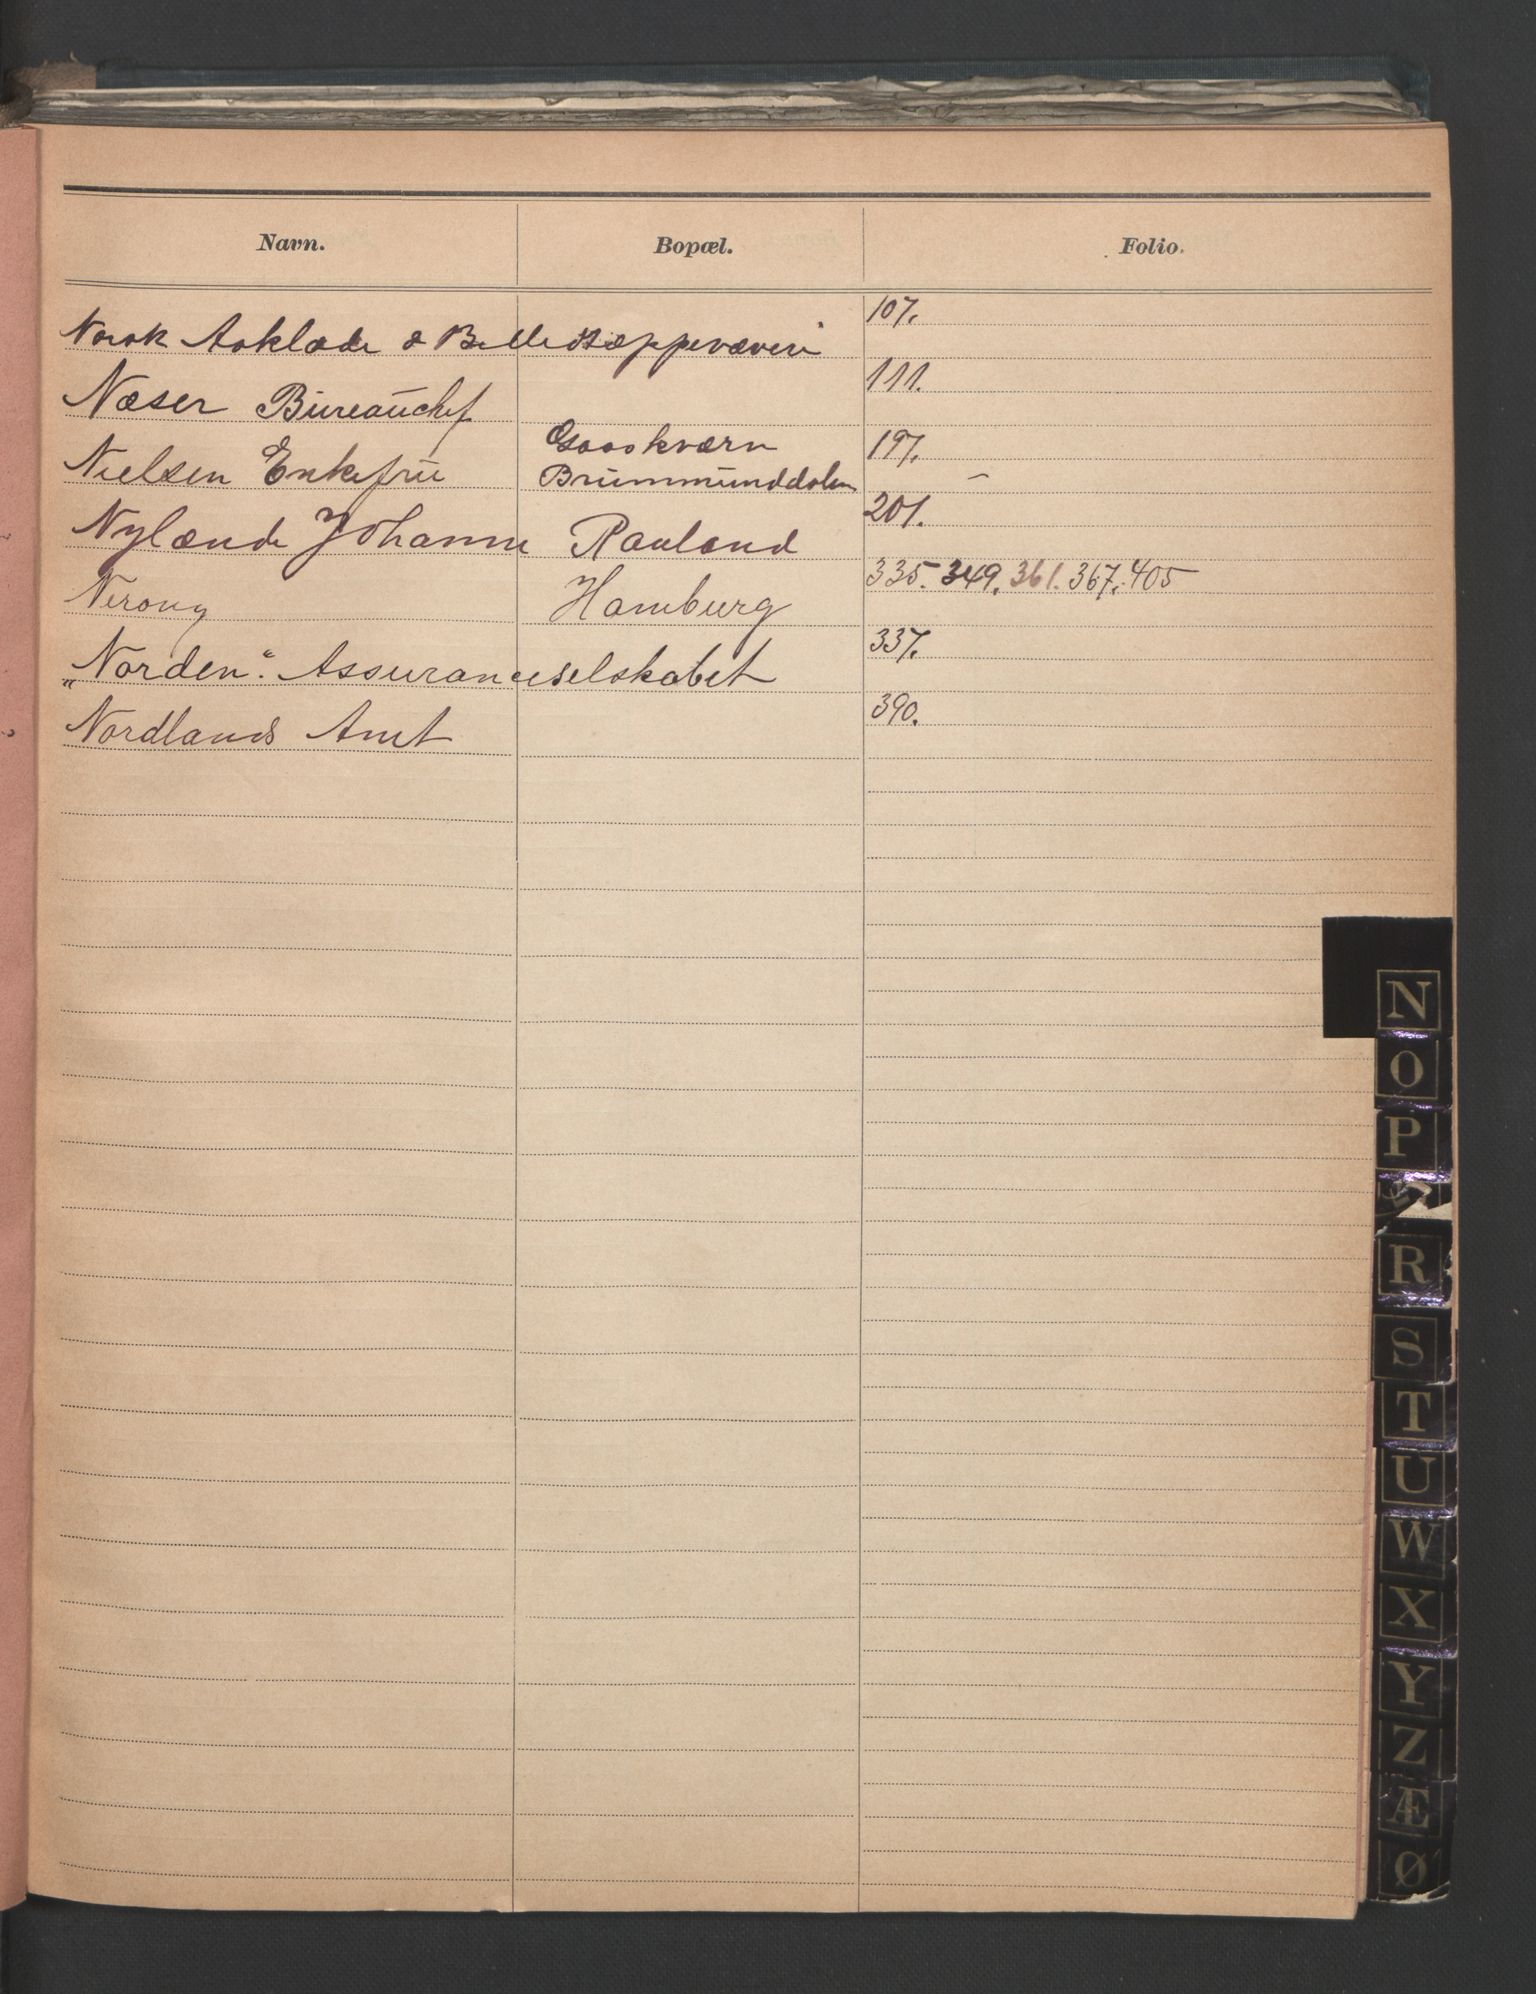 Navn. Bopæl. Folio.
Norsk Aaklæde & Billedtæppevæveri 107.
Næser Bureauchef 111.
Nielsen Enkefru Gaaskværn Brummunddalen 197.
Nylænde Johanne Rauland 201.
Hamburg 335. 349. 361. 367. 405
„Norden“. Assuranceselskabet 337.
Nordlands Amt 390.
N
O
P
R
S
T
U
W
X
Y
Z
Æ
Ø